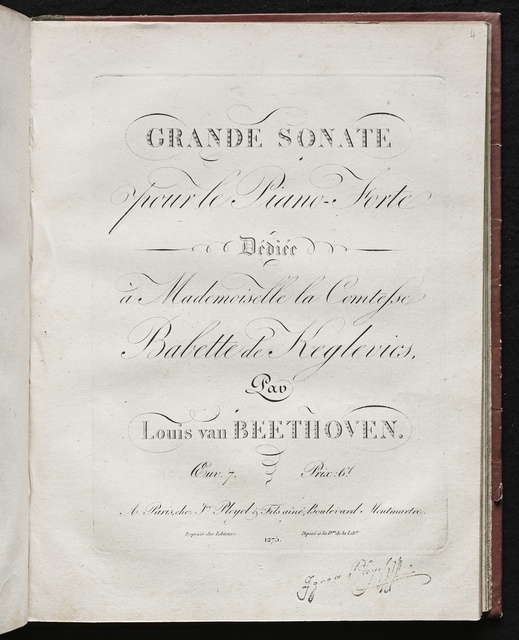 4
GRANDE SONATE
pour le Piano-Forte
Dédiée
à Mademoiselle la Comtesse
Babette de Keglevics,
Par
Louis van BEETHOVEN.
Œuv. 7. Prix: 6f
A Paris, chez Ice Pleyel & Fils ainé, Boulevard Montmartre.
Propriété des Editeurs Déposé à la Don de la Libie
1273.
Ignace Pleyel